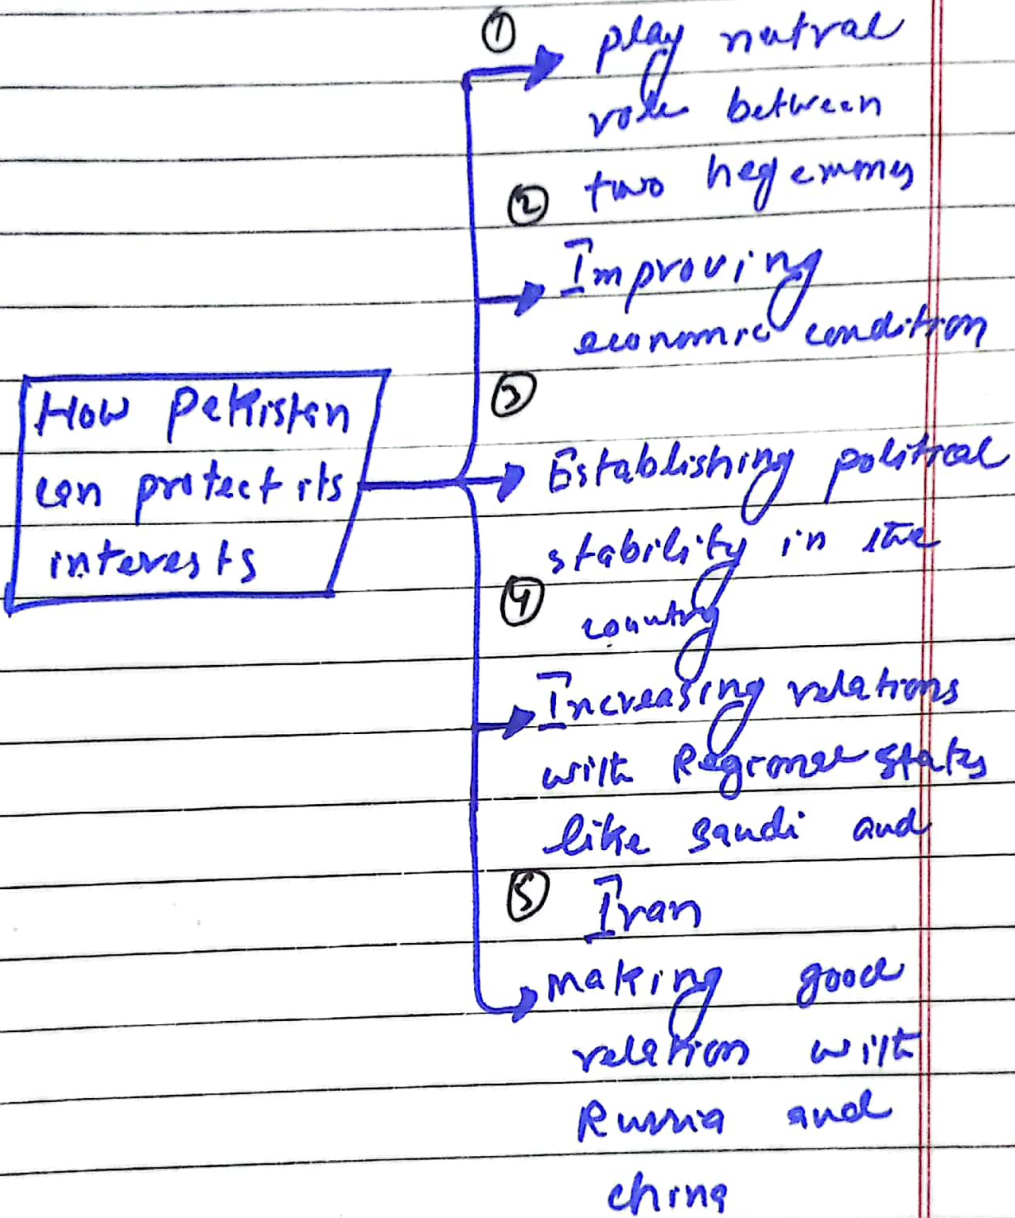 How Pakistan
can protect its
interests
①
play nutral
role between
two hegemmeny
②
Improving
economic condition
③
Establishing political
stability in the
country
④
Increasing relations
with Regional states
like saudi and
Iran
⑤
making good
relation with
Russia and
china